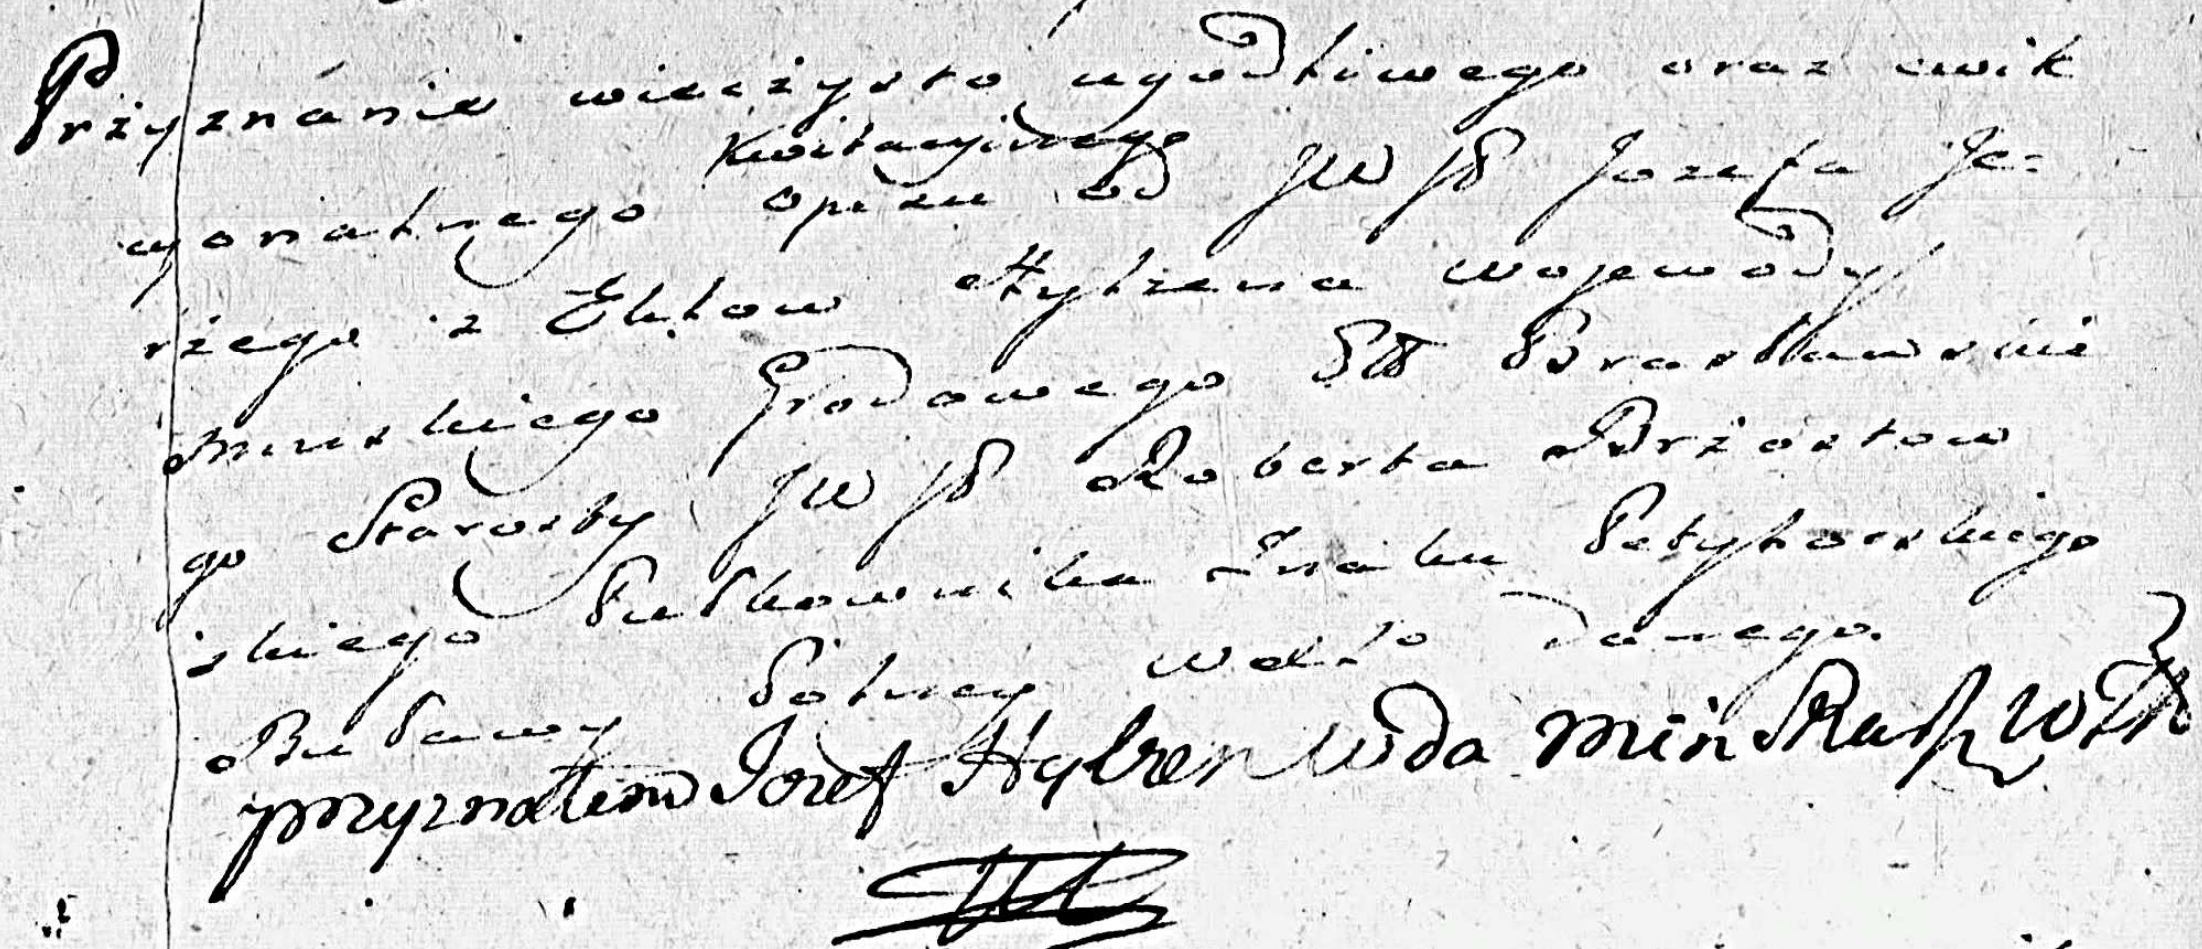 Przyznanie wieczysto ugodliwego oraz ewik
Kwitacyinego
cyonalnego opisu od JW JP Jozefa Je=
rzego z Eklow Hylzena Wojewody
Minskiego Grodowego Braslawskie
go Starosty JW JP Roberta Brzostow
skiego Pulkownika Znaku Petyhorskiego
Bulawy Polney WoXLo danego.
przyznałem Jozef Hylzen Wda Minski